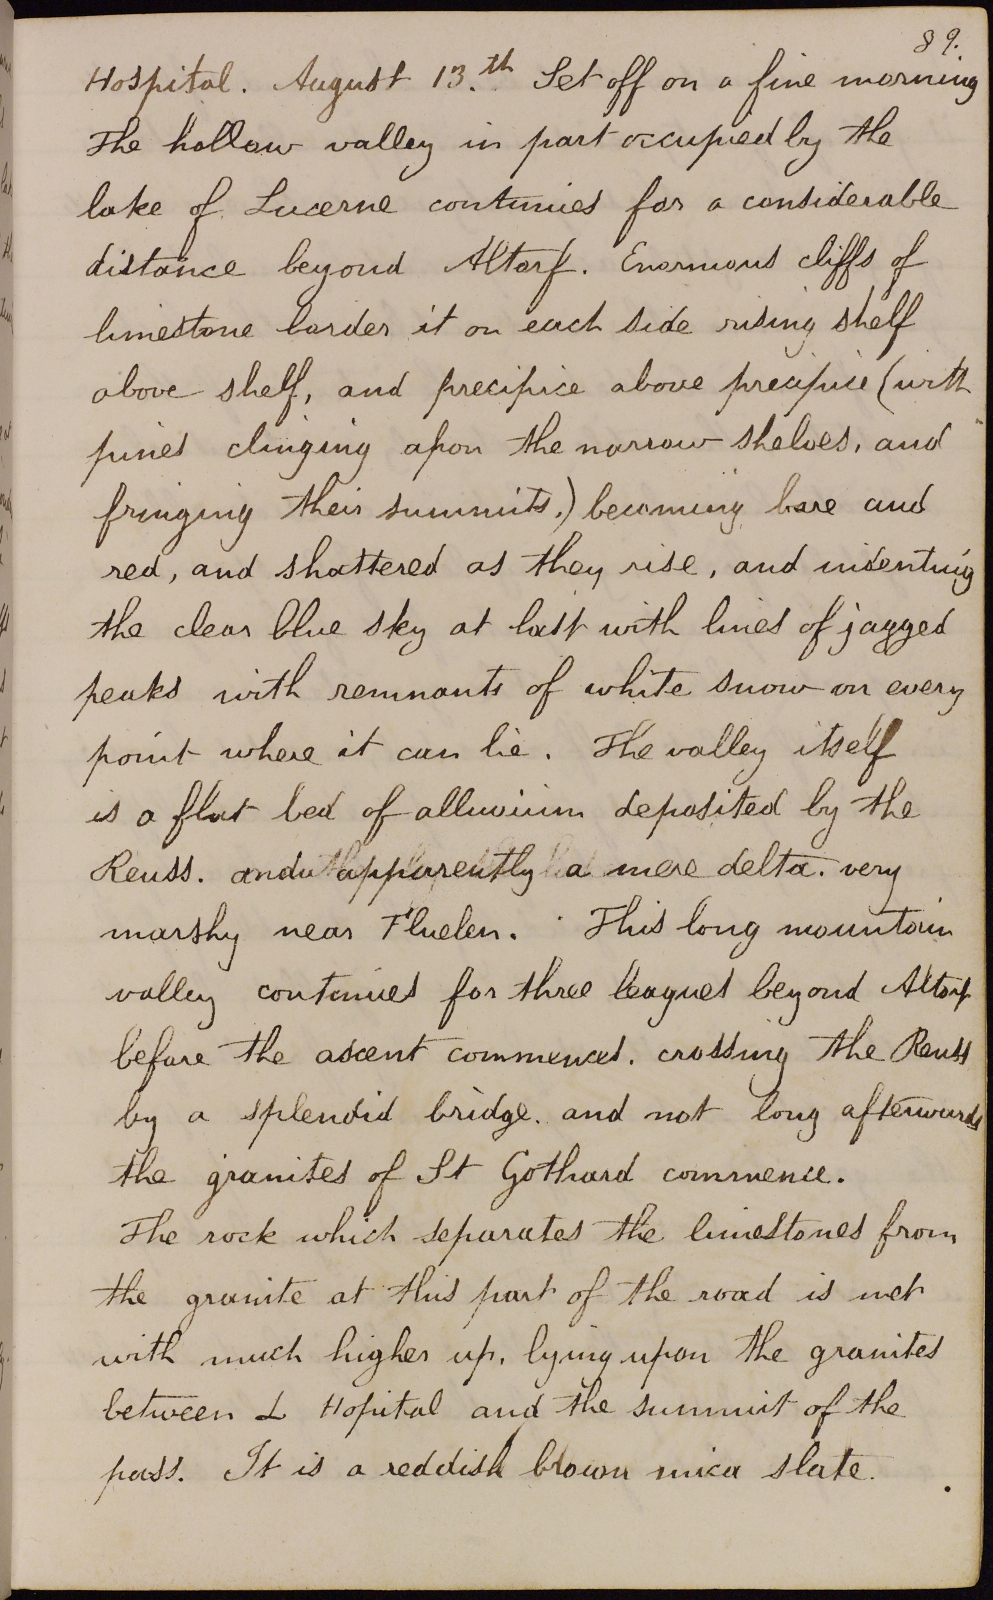 89.
Hospital. August 13.th Set off on a fine morning
The hollow valley in part occupied by the
lake of Lucerne continues for a considerable
distance beyond Altorf. Enormous cliffs of
limestone border it on each side rising shelf
above shelf, and precipice above precipice (with
pines clinging upon the narrow shelves, and
fringing their summits.) becoming bare and
red, and shattered as they rise, and indenting
the clear blue sky at last with lines of jagged
peaks with remnants of white snow on every
point where it can lie. The valley itself
is a flat bed of alluvium deposited by the
Reuss. and apparently a mere delta. very
marshy near Fluelen. This long mountain
valley continues for three leagues beyond Altorf
before the ascent commences. crossing the Reuss
by a splendid bridge. and not long afterwards
the granites of St Gothard commence.
The rock which separates the limestones from
the granite at this part of the road is met
with much higher up, lying upon the granites
between L Hopital and the summit of the
pass. It is a reddish brown mica slate.